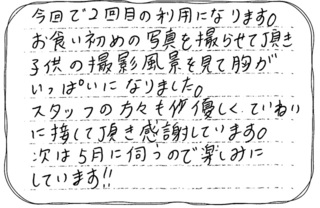 今回で2回目の利用になります。
お食い初めの写真を撮らせて頂き
子供の撮影風景を見て胸が
いっぱいになりました。
スタッフの方々も優しく、ていねい
に接して頂き感謝しています。
次は5月に伺うので楽しみに
しています!!